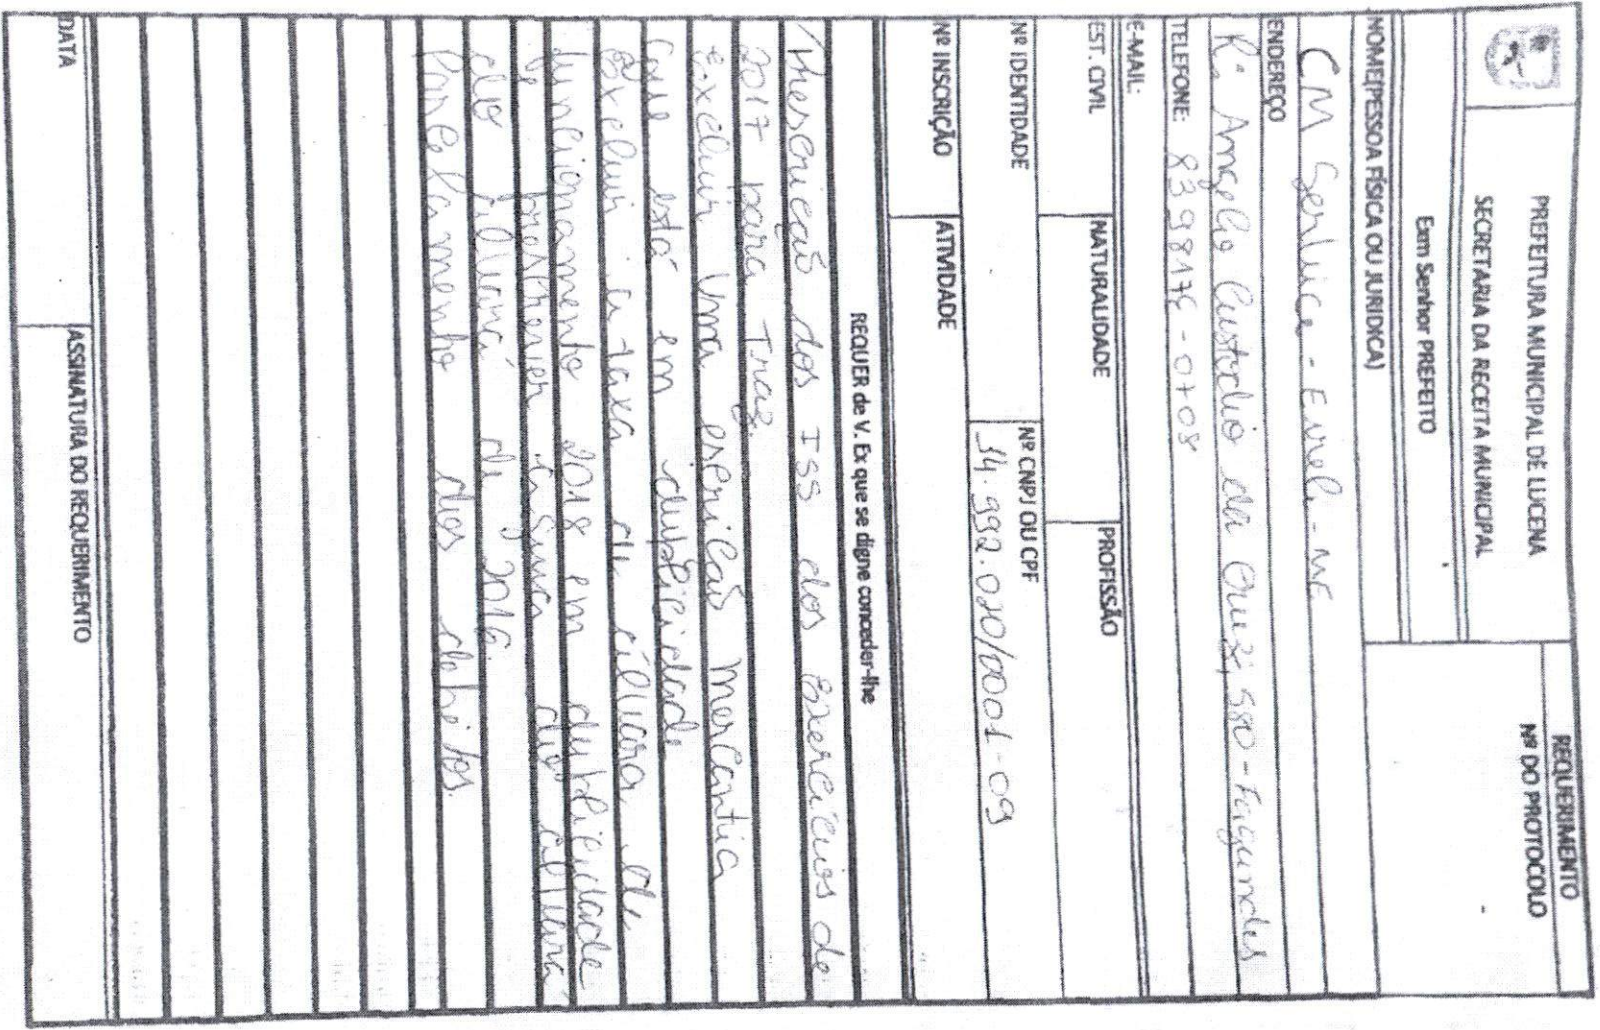 PREFEITURA MUNICIPAL DE LUCENA
SECRETARIA DA RECEITA MUNICIPAL
REQUERIMENTO
Nº DO PROTOCOLO
Exm Senhor PREFEITO
NOME(PESSOA FÍSICA OU JURIDICA)
CM Service - Eireli - ME
ENDEREÇO
R: Angelo Custodio da Cruz, 580 - Fagundes
TELEFONE: 8398176-0708
E-MAIL:
EST. CIVIL NATURALIDADE PROFISSÃO
Nº IDENTIDADE Nº CNPJ OU CPF
14.992.020/0001-09
Nº INSCRIÇÃO ATIVIDADE
REQUER de V. Ex que se digne conceder-lhe
Prescrição dos ISS dos Exercícios de
2017 para Traz.
Excluir Uma escrição mercantia
que está em duplicidade
Excluir a taxa de alvara de
funcionamento 2018 em duplicidade
e prescrever cobrança do alvara
do alvará de 2016.
Parcelamento dos debitos.
DATA ASSINATURA DO REQUERIMENTO